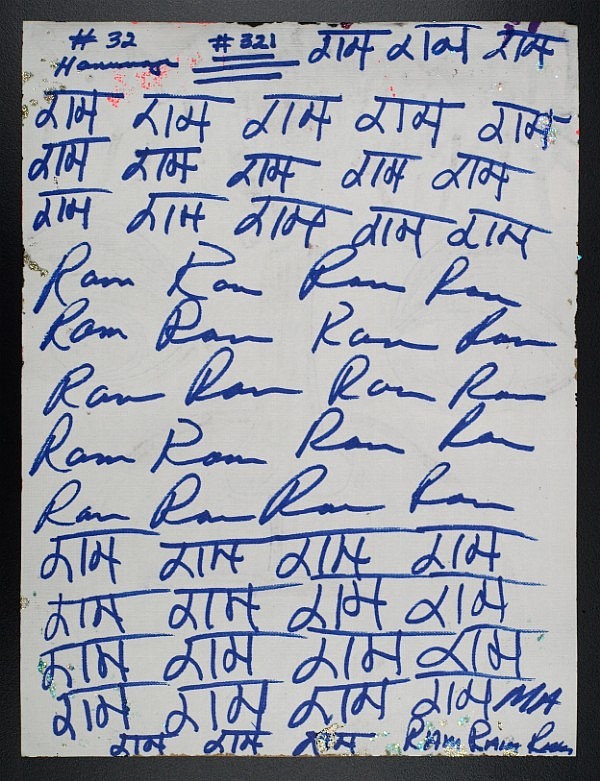 # 32 # 321 राम राम राम
राम राम राम राम राम
राम राम राम राम राम
राम राम राम राम राम
Ram Ram Ram Ram
Ram Ram Ram Ram
Ram Ram Ram Ram
Ram Ram Ram Ram
Ram Ram Ram Ram
राम राम राम राम
राम राम राम राम
राम राम राम राम
राम राम राम राम MA
राम राम राम RAM RAM Ram